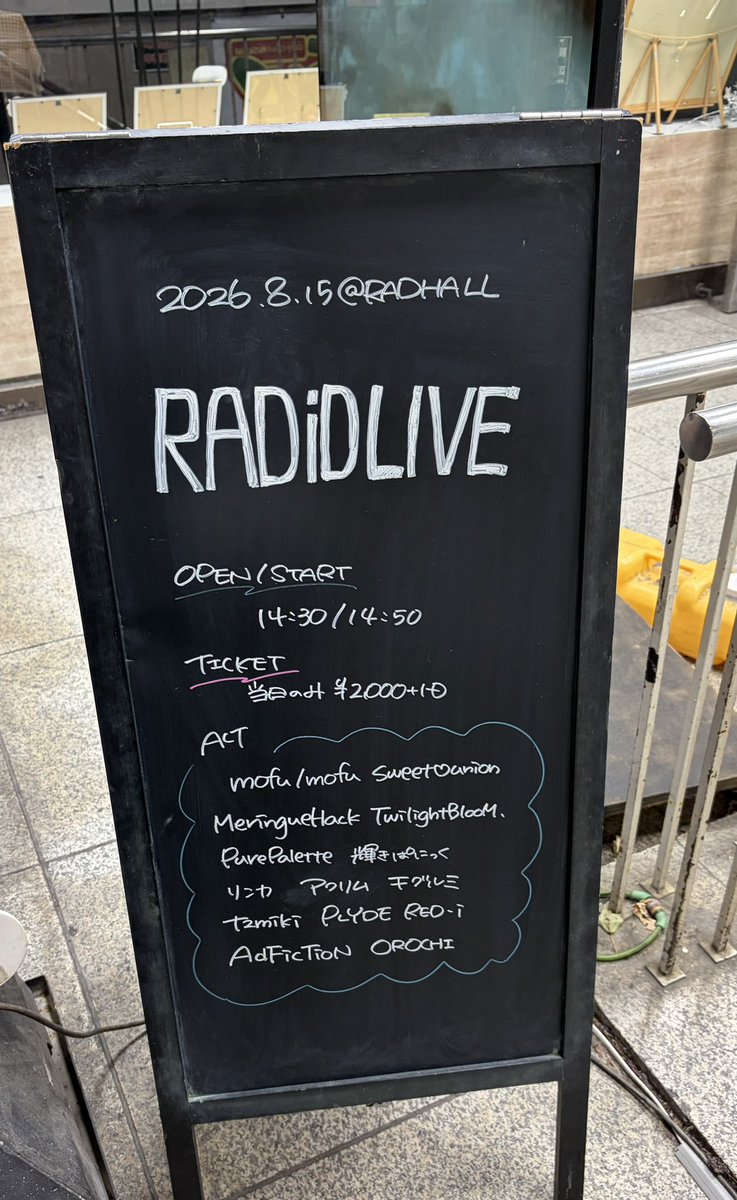 2026.8.15@RADHALL
RADiDLIVE
OPEN/START
14:30/14:50
TICKET
当日のみ ¥2,000+1D
ACT
mofu/mofu sweet♡union
MeringueHack TwilightBlooM.
PurePalette 輝きぱにっく
リンカ アクリム キグルミ
tamiki PLYDE RED-i
AdFicTioN OROCHI